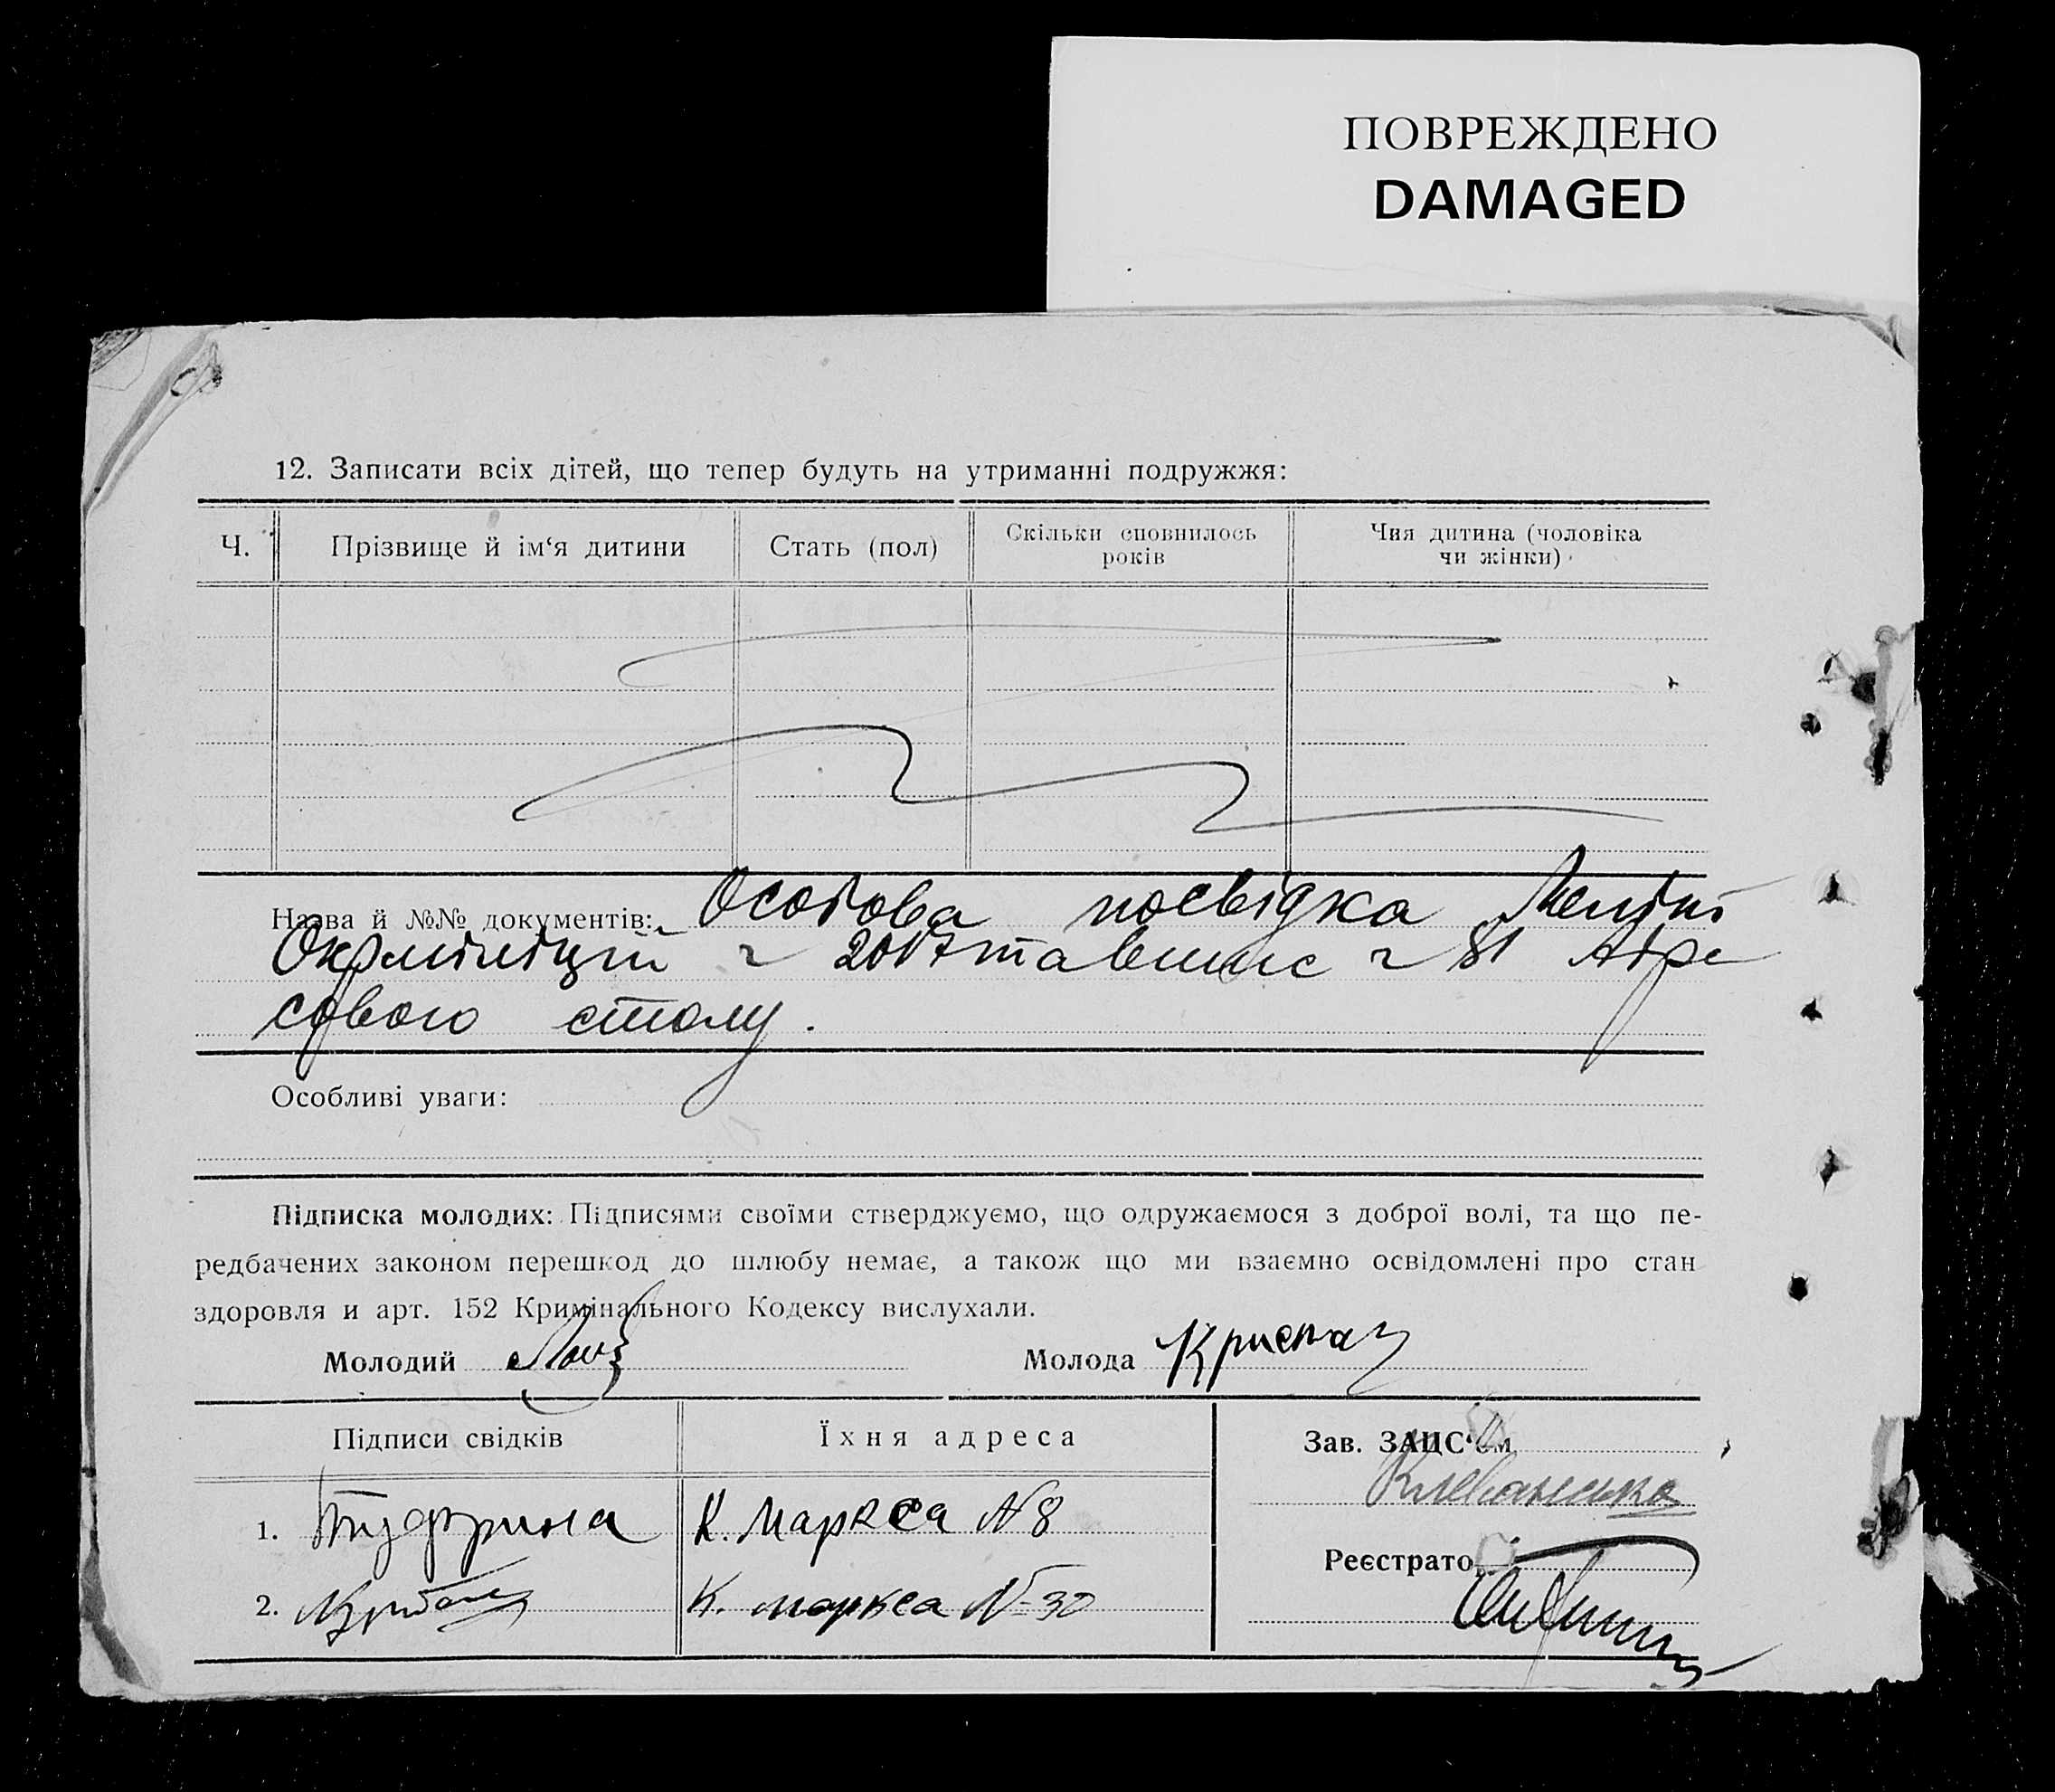 ПОВРЕЖДЕНО
DAMAGED
12. Записати всіх дітей, що тепер будуть на утриманні подружжя:
Ч. Прізвище й ім‘я дитини Стать (пол) Скільки сповнилось років Чия дитина (чоловіка чи жінки)
Назва й №№ документів: Особова посвідка
Окрміліції
сового столу.
Особливі уваги:
Підписка молодих: Підписями своїми стверджуємо, що одружаємося з доброї волі, та що пе-
редбачених законом перешкод до шлюбу немає, а також що ми взаємно освідомлені про стан
здоровля и арт. 152 Кримінального Кодексу вислухали.
Молодий Молода
Підписи свідків Їхня адреса Зав. ЗАЦС‘ом
1. К. Маркса № 8
Реєстратор
2. К. маркса № 30